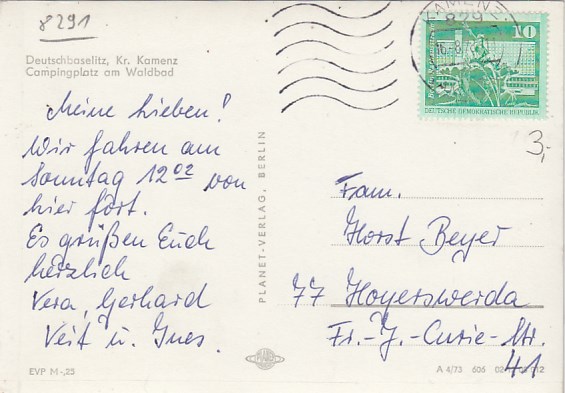 8291
Deutschbaselitz, Kr. Kamenz
Campingplatz am Waldbad
KAMENZ
829
10
DEUTSCHE DEMOKRATISCHE REPUBLIK
3,-
Meine Lieben!
Wir fahren am
Sonntag 12⁰² von
hier fort.
Es grüßen Euch
herzlich
Vera, Gerhard
Veit u. Ines.
PLANET-VERLAG, BERLIN
Fam.
Horst Beyer
77 Hoyerswerda
Fr.-J.-Curie-Str.
41
EVP M -,25
A 4/73 606